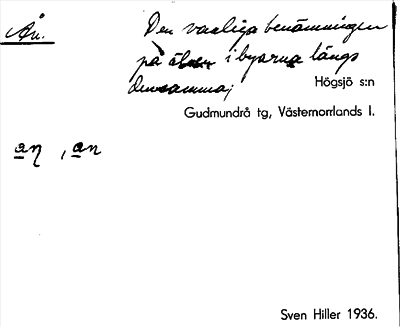 Ån.
Den vanliga benämningen
på älven i byarna längs
densamma;
Högsjö s:n
Gudmundrå tg, Västernorrlands l.
an, an
Sven Hiller 1936.